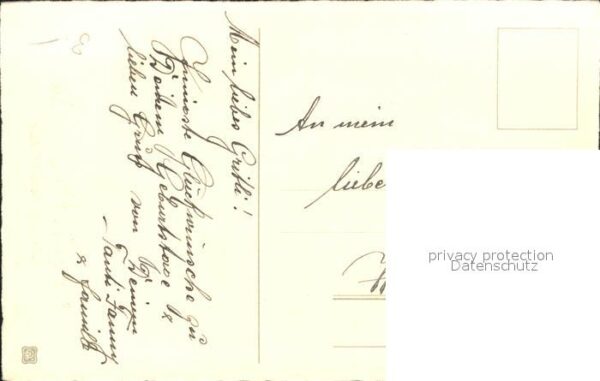 Mein liebes Gritli!
Innigste Glückwünsche zu
Deinem Geburtstage &
lieben Gruß von Deinem
Tanti Fanny
& Familie
An mein
liebe
privacy protection
Datenschutz